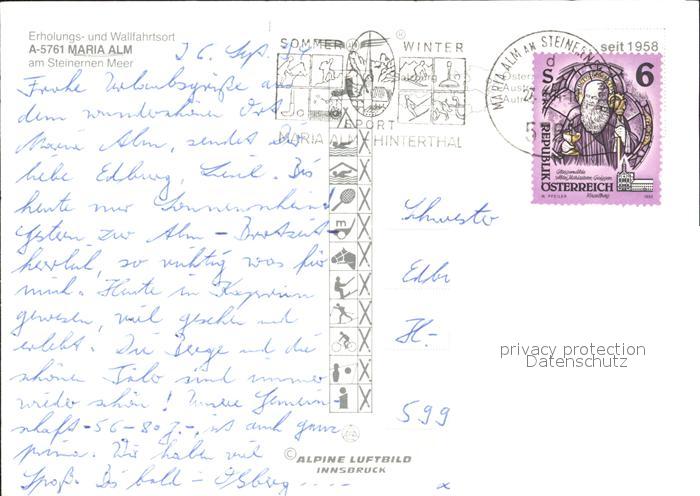 Erholungs- und Wallfahrtsort
A-5761 MARIA ALM
am Steinernen Meer
26. Sept.
Frohe Urlaubsgrüße aus
dem wunderschönen Ort
Maria Alm, sendet Dir
liebe Edburg, Bis
heute nur Sonnenschein!
Gestern zur Alm - Brotzeit
herrlich, so richtig was für
mich. Heute in Kaprun
gewesen, viel gesehen und
erlebt. Die Berge und die
schönen Täler sind immer
wieder schön! Unsere Gemein-
schaft -56-80 J.-, ist auch ganz
prima. Wir haben viel
Spaß. Bis bald -
SOMMER WINTER
SPORT
MARIA HINTERTHAL
MARIA ALM AM STEINERNEN
seit 1958
S 6
REPUBLIK
ÖSTERREICH
Schwester
Edbu
H-
599
privacy protection
Datenschutz
© ALPINE LUFTBILD
INNSBRUCK
x